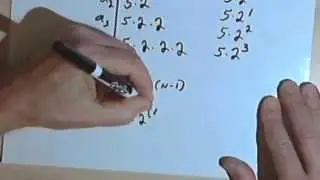 a₂ 5·2
5·2¹
a₃ 5·2·2
5·2²
5·2·2·2
5·2³
(N-1)
2